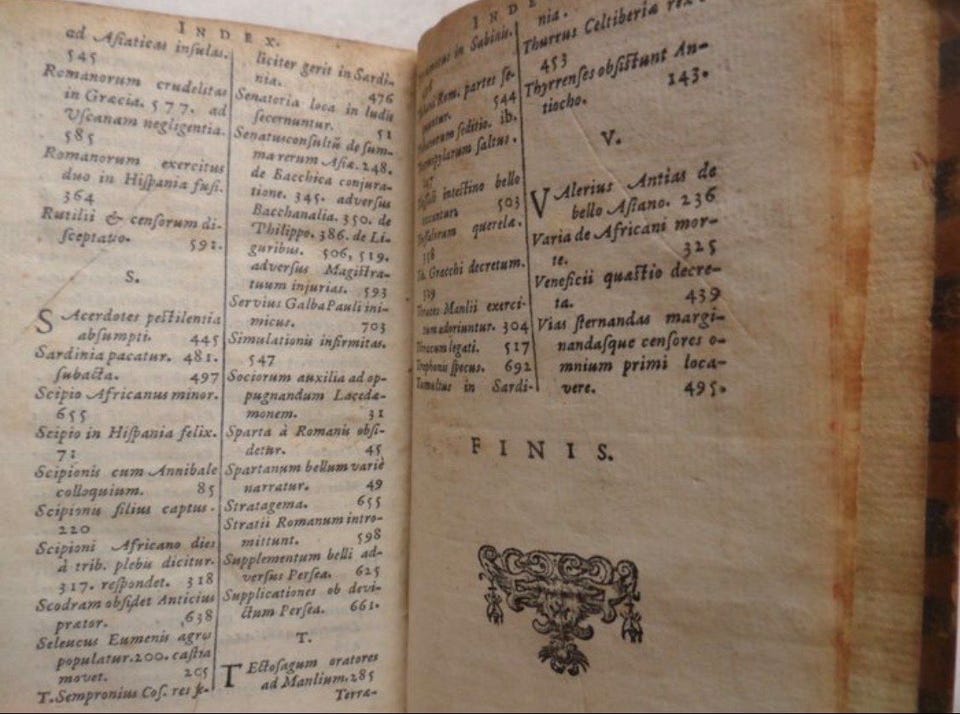 INDEX.
ad Asiaticas insulas.
545
Romanorum crudelitas
in Græcia. 577. ad
Vscanam negligentia.
585
Romanorum exercitus
duo in Hispania fusi.
364
Rutilii & censorum di-
sceptatio. 591.
S.
SAcerdotes pestilentia
absumpti. 445
Sardinia pacatur. 481.
subacta. 497
Scipio Africanus minor.
655
Scipio in Hispania felix.
71
Scipionis cum Annibale
colloquium. 85
Scipionis filius captus.
220
Scipioni Africano dies
à trib. plebis dicitur.
317. respondet. 318
Scodram obsidet Anticius
prætor. 638
Seleucus Eumenis agros
populatur. 200. castra
movet. 205
T. Sempronius Cos. res fe-
liciter gerit in Sardi-
nia. 476
Senatoria loca in ludis
secernuntur. 51
Senatusconsultū de sum-
ma rerum Asiæ. 248.
de Bacchica conjura-
tione. 345. adversus
Bacchanalia. 350. de
Philippo. 386. de Li-
guribus. 506, 519.
adversus Magistra-
tuum injurias. 593
Servius Galba Pauli ini-
micus. 703
Simulationis infirmitas.
547
Sociorum auxilia ad op-
pugnandum Lacedæ-
monem. 31
Sparta à Romanis obsi-
detur. 45
Spartanum bellum variè
narratur. 49
Stratagema. 655
Stratii Romanum intro-
mittunt. 598
Supplementum belli ad-
versus Persea. 625
Supplicationes ob devi-
ctum Persea. 661.
T.
TEctosagum oratores
ad Manlium. 285
Terræ-
INDE
in Sabinis.
Rom. partes se-
544
seditio. ib.
saltus.
intestino bello
503
querelæ.
Gracchi decretum.
Manlii exerci-
tum adoriuntur. 304
legati. 517
Trophonii specus. 692
Tumultus in Sardi-
nia.
Thurrus Celtiberiæ rex
453
Thyrrenses obsistunt An-
tiocho. 143.
V.
VAlerius Antias de
bello Asiano. 236
Varia de Africani mor-
te. 325
Veneficii quæstio decre-
ta. 439
Vias sternandas margi-
nandasque censores o-
mnium primi loca-
vere. 495.
FINIS.